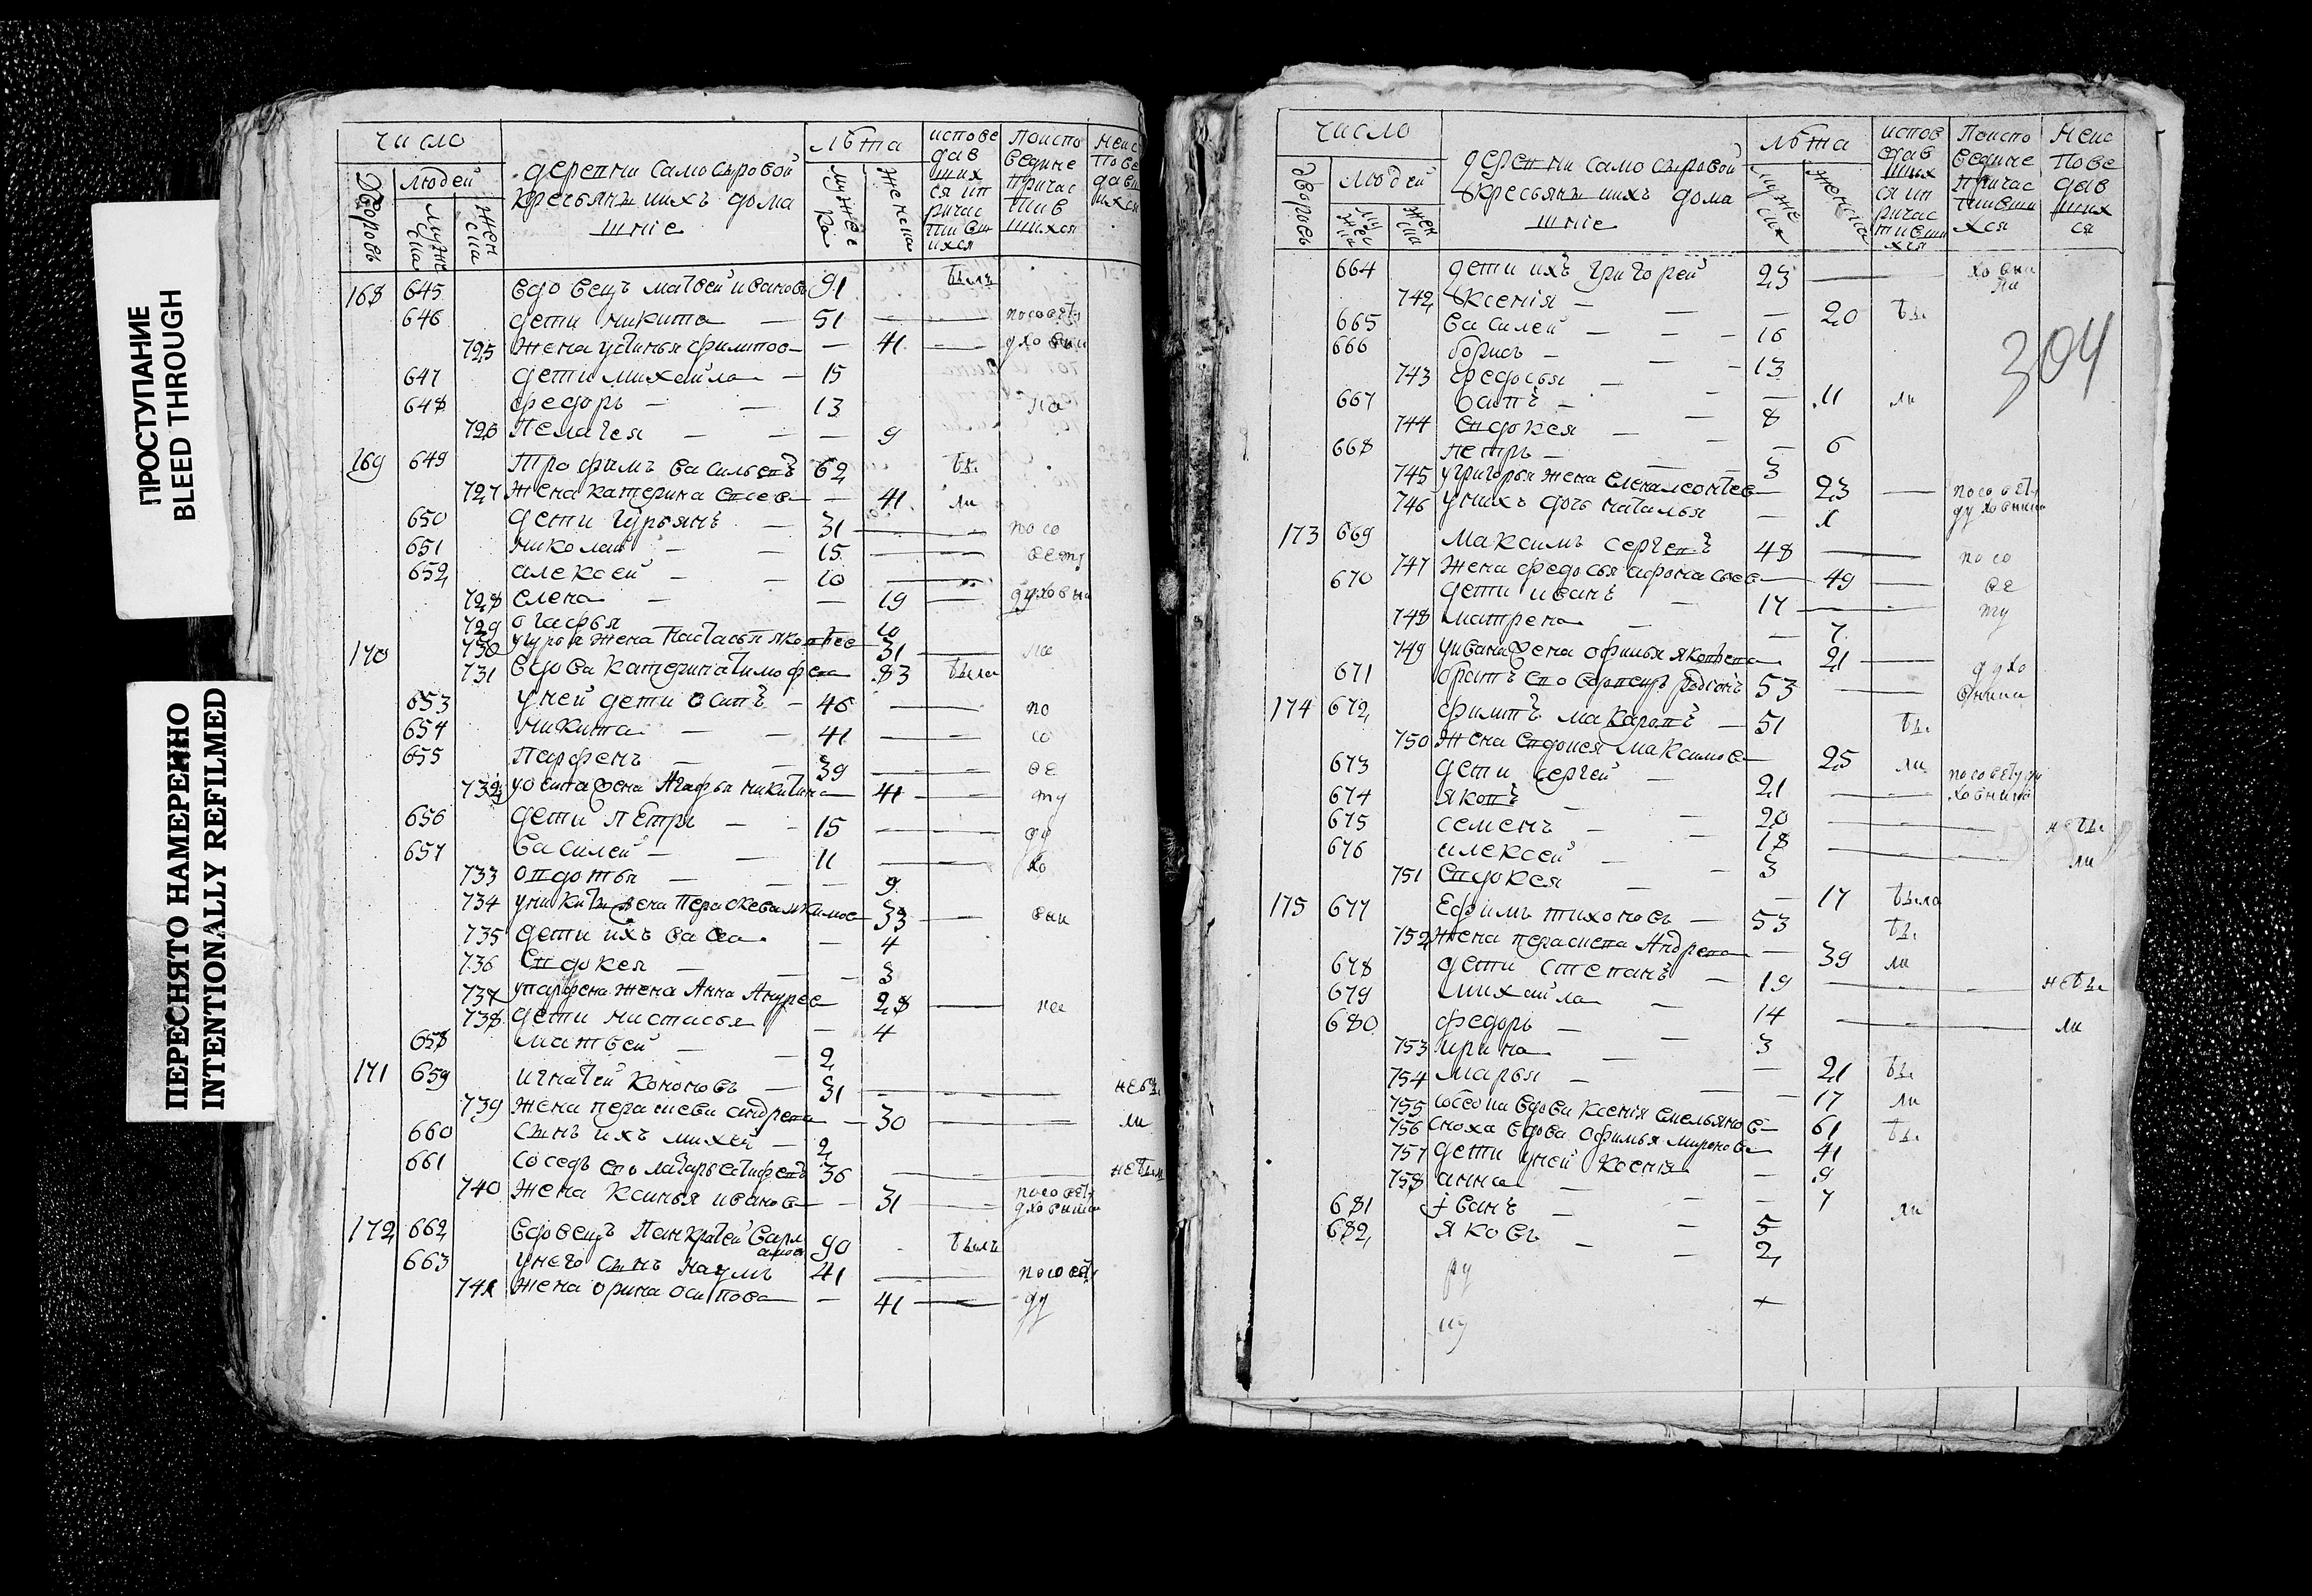 ПРОСТУПАНИЕ
BLEED THROUGH
ПЕРЕСНЯТО НАМЕРЕННО
INTENTIONALLY REFILMED
число
Дворовъ
людей
муже ска
жен ска
деревни самосыровой
крестьянъ ихъ дома
шніе
лѣта
мужес ка
женска
испове
дав
ших
ся ип
ричас
тивш
ихся
поиспо
ведине
причас
тив
шихся
неис
пове
дав
ихся
168 645 вдовецъ матвей ивановъ 91 былъ
646 дети никита — 51 — — посовету
725 жена устинья филипов — — 41 — духовни
647 дети михайла — 15
648 федоръ — — 13 ка
726 Пелагея — — — 9
169 649 Трофимъ васильевъ 62 бы
727 жена катерина евсев — — 41 ли
650 дети гурьянъ — 31 — — посо
651 николай — — 15 — — вету
652 алексей — — 10 — —
728 елена — — 19 — духовни
729 огафья 10
730 угурья жена настасья яковлев 31 — ка
170 731 вдова катерина тимофеева 83 была
653 уней дети осипъ — 46 — — по
654 никита — — 41 — — со
655 Парфенъ — — 39 — — ве
732 уосипа жена Агафья никитина 41 — ту
656 дети петръ — — 15 — — ду
657 василей — — 11 — — хо
733 овдотья — — — 9
734 уникиты жена Параскева 33 — вни
735 дети ихъ васса — 4
736 Евдокея — — — 3
737 упарфена жена Анна Андреев 28 — ка
738 дети настасья — 4
658 матвей — — 2
171 659 игнатей кононовъ — 31 — — — небы
739 жена параскева андреева — 30 — — ли
660 сынъ ихъ михей — 2
661 соседъ ево лазарь 36 — — небыли
740 жена ксинья иванов — 31 — посовету
духовника
172 662 вдовецъ Панкратей Варл
амов 90 былъ
663 унего сынъ наумъ 41 — посовету
741 жена орина осипова — 41 — ду
число
дворовъ
людей
муже ска
жен ска
деревни самосыровой
крестьянъ ихъ дома
шніе
лѣта
муже ска
женска
испов
едав
ших
ся ип
ричас
тивши
хся
поиспо
ведине
причас
тивши
хся
неис
пове
дав
ших
ся
304
664 дети ихъ григорей 23 — ховни
ка
742 ксенія — — — 20 бы
665 василей — — — 16
666 борисъ — — — 13
743 федосья — — 11 ли
667 осипъ — — 8
744 евдокея — — 6
668 петръ — — 3
745 угригорья жена елена леонтев — 23 — посовету
746 унихъ дочь наталья — 1 духовника
173 669 Максимъ сергеевъ 48 — посо
747 жена федосья афонасьев — 49 — ве
670 дети иванъ — 17 — ту
748 матрена — — 7
749 уивана жена офимья яковлева 21 — духо
671 братъ ево родионъ 53 — вника
174 672 филипъ макаровъ — 51 бы
750 жена евдокея максимов — 25 ли
673 дети сергей — 21 — посовету ду
674 яковъ — — 20 ховника
675 семенъ — — 18 — — небы
676 алексей — 3 — — ли
751 Евдокея — — 17 была
175 677 Ефимъ тихоновъ — 53 бы
752 жена параскева Андреева — 39 ли
678 дети степанъ — 19 — — небы
679 михайла — 14
680 федоръ — — 3 — — ли
753 ирина — — 21 бы
754 марья — — — 17 ли
755 вдова ксенія емельянов — 61 бы
756 сноха вдова офимья миронова 41
757 дети уней ксенія — 9
758 анна — — 7 ли
681 іванъ — 5
682 яковъ — — 2
ру
ну